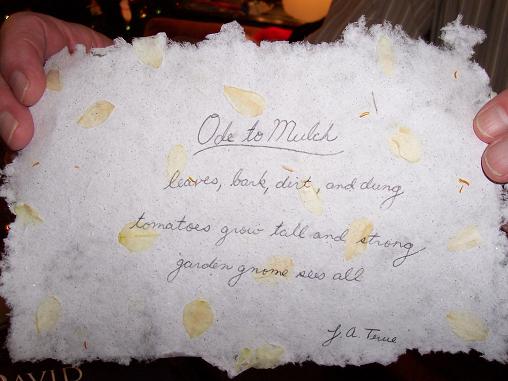 Ode to Mulch
leaves, bark, dirt, and dung
tomatoes grow tall and strong
garden gnome sees all
J.A. Terue
DAVID